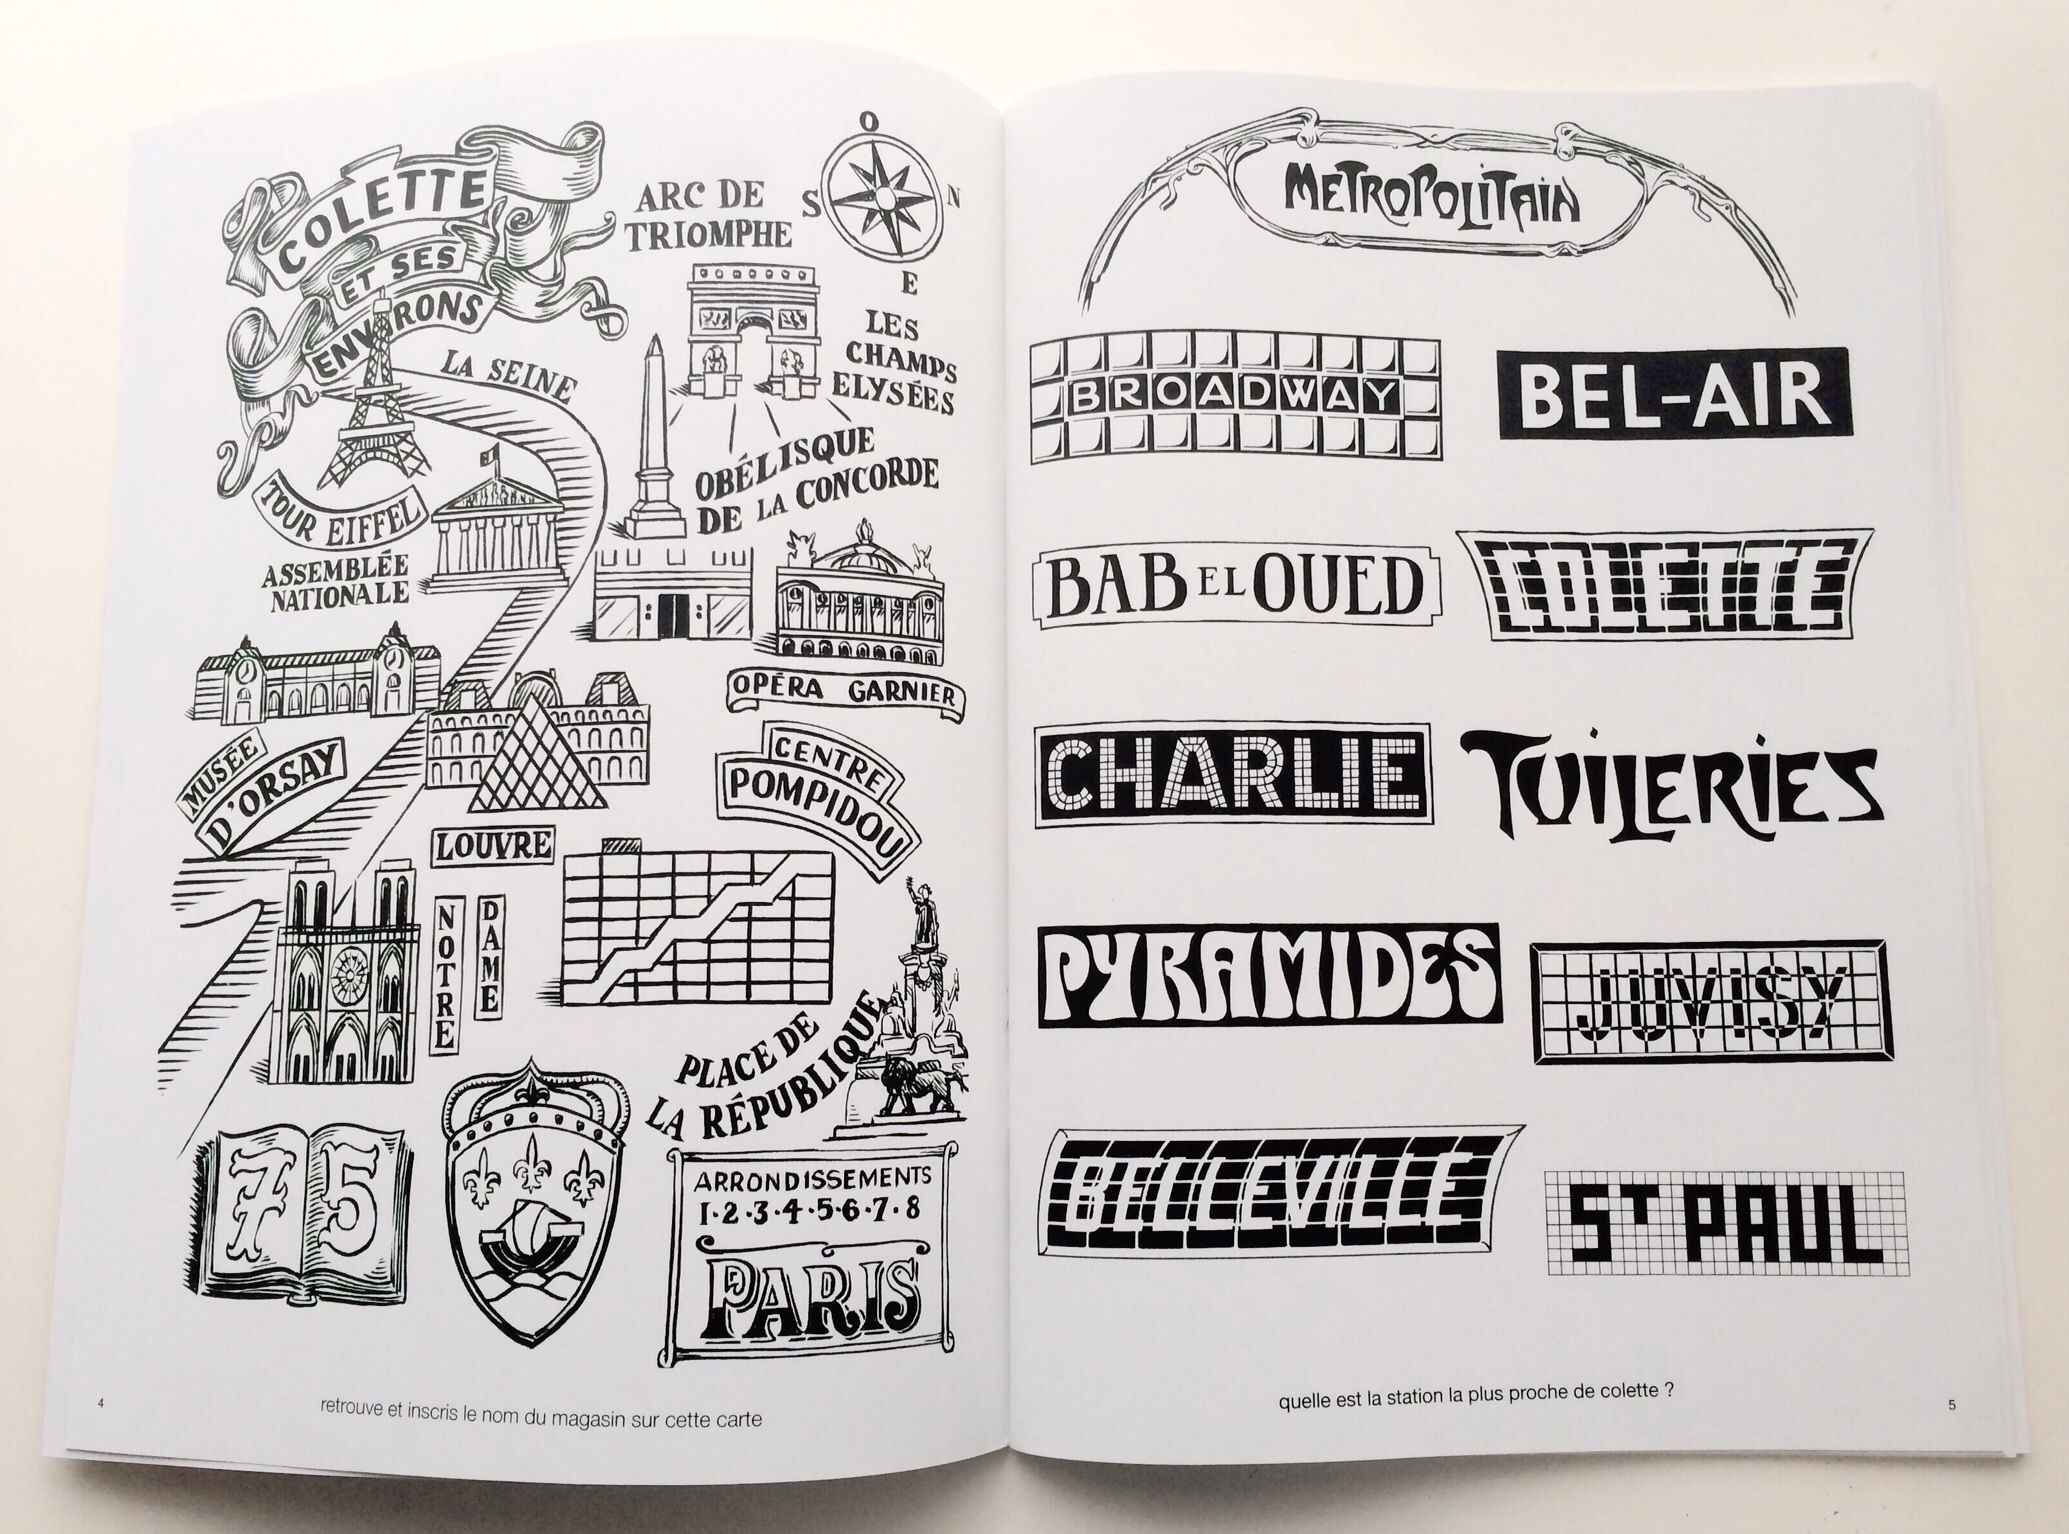 COLETTE
ET SES
ENVIRONS
ARC DE
TRIOMPHE
O
S
N
E
LA SEINE
LES
CHAMPS
ELYSÉES
OBÉLISQUE
DE LA CONCORDE
TOUR EIFFEL
ASSEMBLÉE
NATIONALE
OPÉRA GARNIER
MUSÉE
D'ORSAY
CENTRE
POMPIDOU
LOUVRE
NOTRE
DAME
PLACE DE
LA RÉPUBLIQUE
75
ARRONDISSEMENTS
1·2·3·4·5·6·7·8
PARIS
4
retrouve et inscris le nom du magasin sur cette carte
METROPOLITAIN
BROADWAY
BEL-AIR
BAB EL OUED
COLETTE
CHARLIE
TUILERIES
PYRAMIDES
JUVISY
BELLEVILLE
ST PAUL
quelle est la station la plus proche de colette ?
5